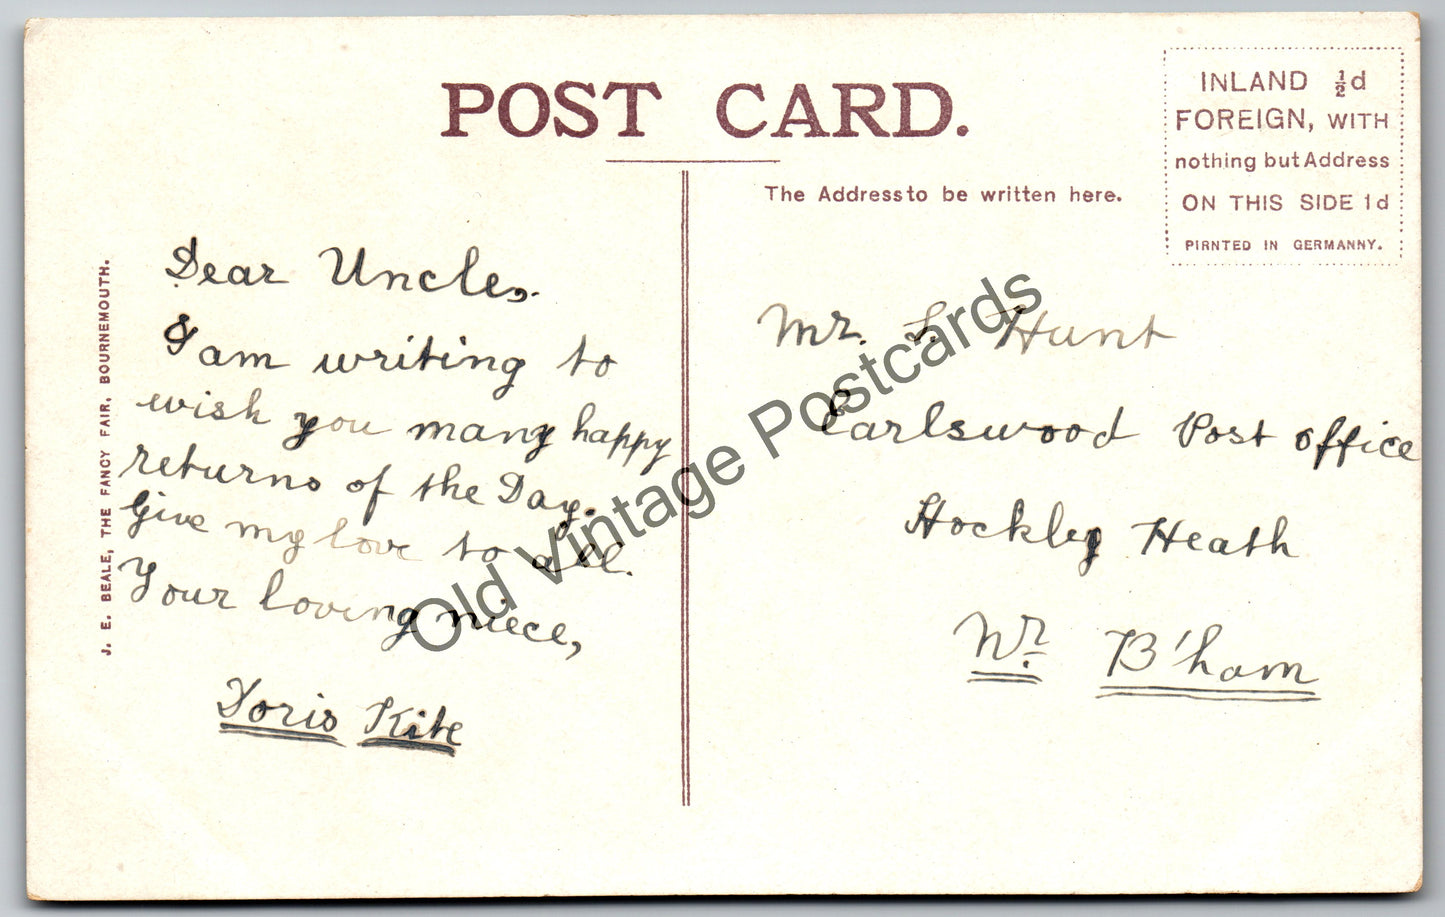 POST CARD.
INLAND ½d
FOREIGN, WITH
nothing but Address
ON THIS SIDE 1d
PIRNTED IN GERMANNY.
The Address to be written here.
J. E. BEALE, THE FANCY FAIR, BOURNEMOUTH.
Dear Uncle,
I am writing to
wish you many happy
returns of the Day.
Give my love to all.
Your loving niece,
Doris Kite
Mr. Hunt
Earlswood Post office
Hockley Heath
Nr. B'ham
Old Vintage Postcards